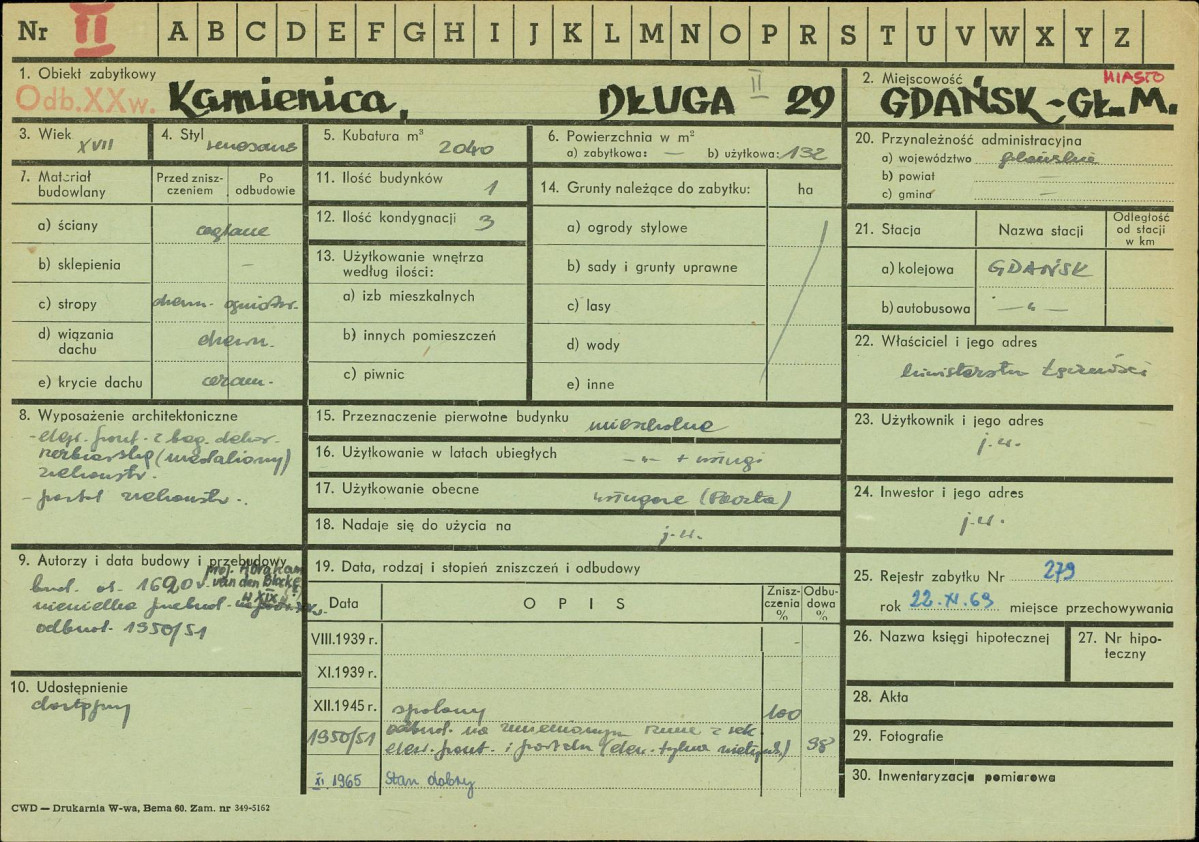 Nr II A B C D E F G H I J K L M N O P R S T U V W X Y Z
1. Obiekt zabytkowy
Odb.XXw. Kamienica, DŁUGA II 29
2. Miejscowość MIASTO
GDAŃSK-GŁ.M.
3. Wiek
XVII
4. Styl
renesans
5. Kubatura m³
2040
6. Powierzchnia w m²
a) zabytkowa: — b) użytkowa: 132
7. Materiał budowlany
Przed zniszczeniem
Po odbudowie
a) ściany ceglane
b) sklepienia –
c) stropy drewn. ogniotr.
d) wiązania dachu drewn.
e) krycie dachu ceram.
11. Ilość budynków 1
12. Ilość kondygnacji 3
13. Użytkowanie wnętrza
według ilości:
a) izb mieszkalnych
b) innych pomieszczeń
c) piwnic
14. Grunty należące do zabytku: ha
a) ogrody stylowe
b) sady i grunty uprawne
c) lasy
d) wody
e) inne
20. Przynależność administracyjna
a) województwo gdańskie
b) powiat –
c) gmina –
21. Stacja Nazwa stacji Odległość od stacji w km
a) kolejowa GDAŃSK
b) autobusowa —"—
22. Właściciel i jego adres
Ministerstwo Łączności
23. Użytkownik i jego adres
j.w.
24. Inwestor i jego adres
j.w.
8. Wyposażenie architektoniczne
- elew. front. z bog. dekor.
rzeźbiarską (medaliony)
zrekonstr.
- portal zrekonstr.
15. Przeznaczenie pierwotne budynku mieszkalne
16. Użytkowanie w latach ubiegłych –"– + usługi
17. Użytkowanie obecne usługowe (Poczta)
18. Nadaje się do użycia na j.w.
9. Autorzy i data budowy i przebudowy
proj. Abraham
van den Blocke
bud. ok. 1620 r.
niewielka przebud. w XIX w.
odbud. 1950/51
10. Udostępnienie
dostępny
19. Data, rodzaj i stopień zniszczeń i odbudowy
Data OPIS Zniszczenia % Odbudowa %
VIII.1939 r. –
XI.1939 r.
XII.1945 r. spalony 100
1950/51 odbud. na zmienionym rzucie z rek.
elew. front. i portalu (elew. tylna nietynk.) 98
XI 1965 Stan dobry
25. Rejestr zabytku Nr 279
rok 22.XI.69 miejsce przechowywania
26. Nazwa księgi hipotecznej
27. Nr hipoteczny
28. Akta
29. Fotografie
30. Inwentaryzacja pomiarowa
CWD — Drukarnia W-wa, Bema 60. Zam. nr 349-5162